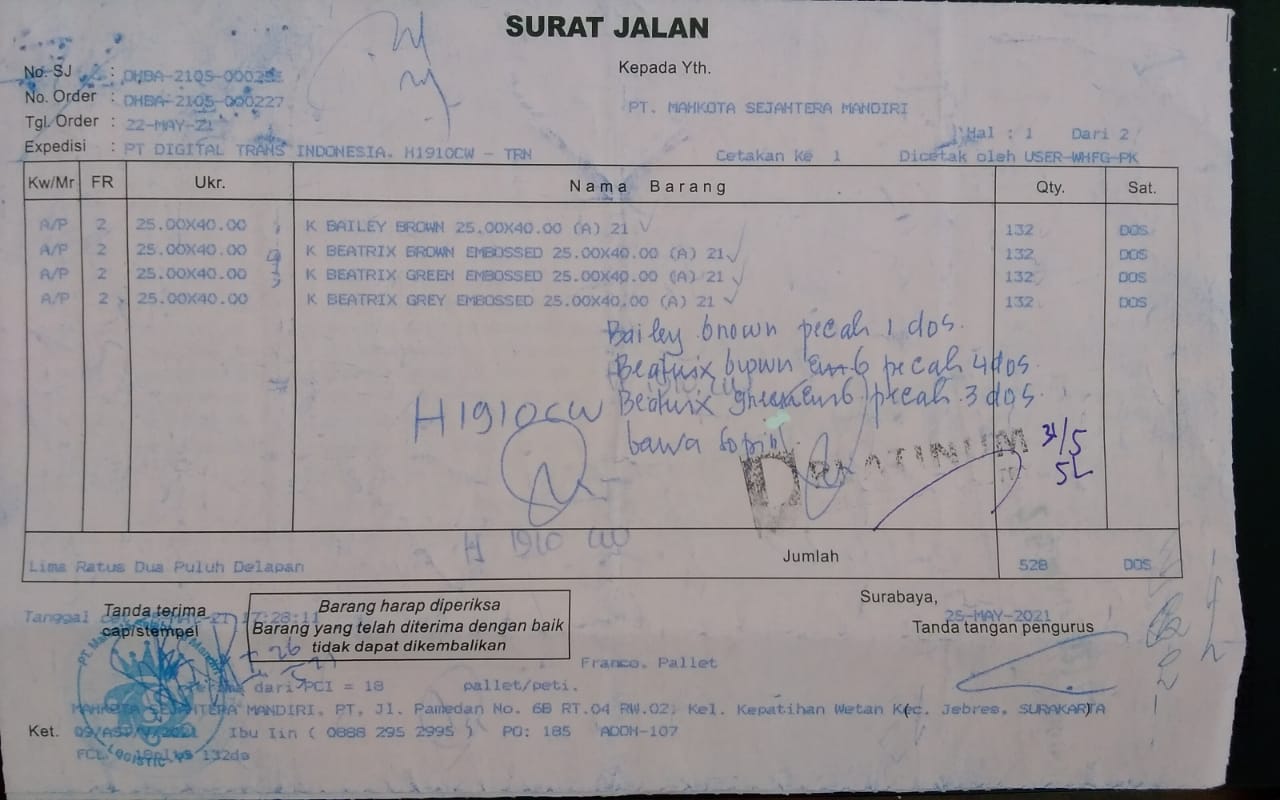 SURAT JALAN
No. SJ :
No. Order : DHBA-2105-000227
Tgl. Order : 22-MAY-21
Expedisi : PT DIGITAL TRANS INDONESIA. H1910CW - TRN
Kepada Yth.
PT. MAHKOTA SEJAHTERA MANDIRI
Hal : 1 Dari 2
Cetakan Ke 1 Dicetak oleh USER-WHFG-PK
Kw/Mr FR Ukr. Nama Barang Qty. Sat.
A/P 2 25.00X40.00 K BAILEY BROWN 25.00X40.00 (A) 21 132 DOS
A/P 2 25.00X40.00 K BEATRIX BROWN EMBOSSED 25.00X40.00 (A) 21 132 DOS
A/P 2 25.00X40.00 K BEATRIX GREEN EMBOSSED 25.00X40.00 (A) 21 132 DOS
A/P 2 25.00X40.00 K BEATRIX GREY EMBOSSED 25.00X40.00 (A) 21 132 DOS
Bailey brown pecah 1 dos.
Beatrix brown emb pecah 4 dos.
H1910CW Beatrix green emb pecah 3 dos.
bawa sopir
PLATINUM
31/5
H 1910 CW
Jumlah
Lima Ratus Dua Puluh Delapan 528 DOS
Tanggal 17:28:11
Tanda terima
cap/stempel
Barang harap diperiksa
Barang yang telah diterima dengan baik
tidak dapat dikembalikan
Surabaya,
25-MAY-2021
Tanda tangan pengurus
Franco. Pallet
dari PCI = 18 pallet/peti.
MAHKOTA SEJAHTERA MANDIRI, PT, Jl. Pamedan No. 6B RT.04 RW.02, Kel. Kepatihan Wetan Kec. Jebres, SURAKARTA
Ket. Ibu Iin ( 0888 295 2995 ) PO: 185 ADDN-107
LOGISTIC